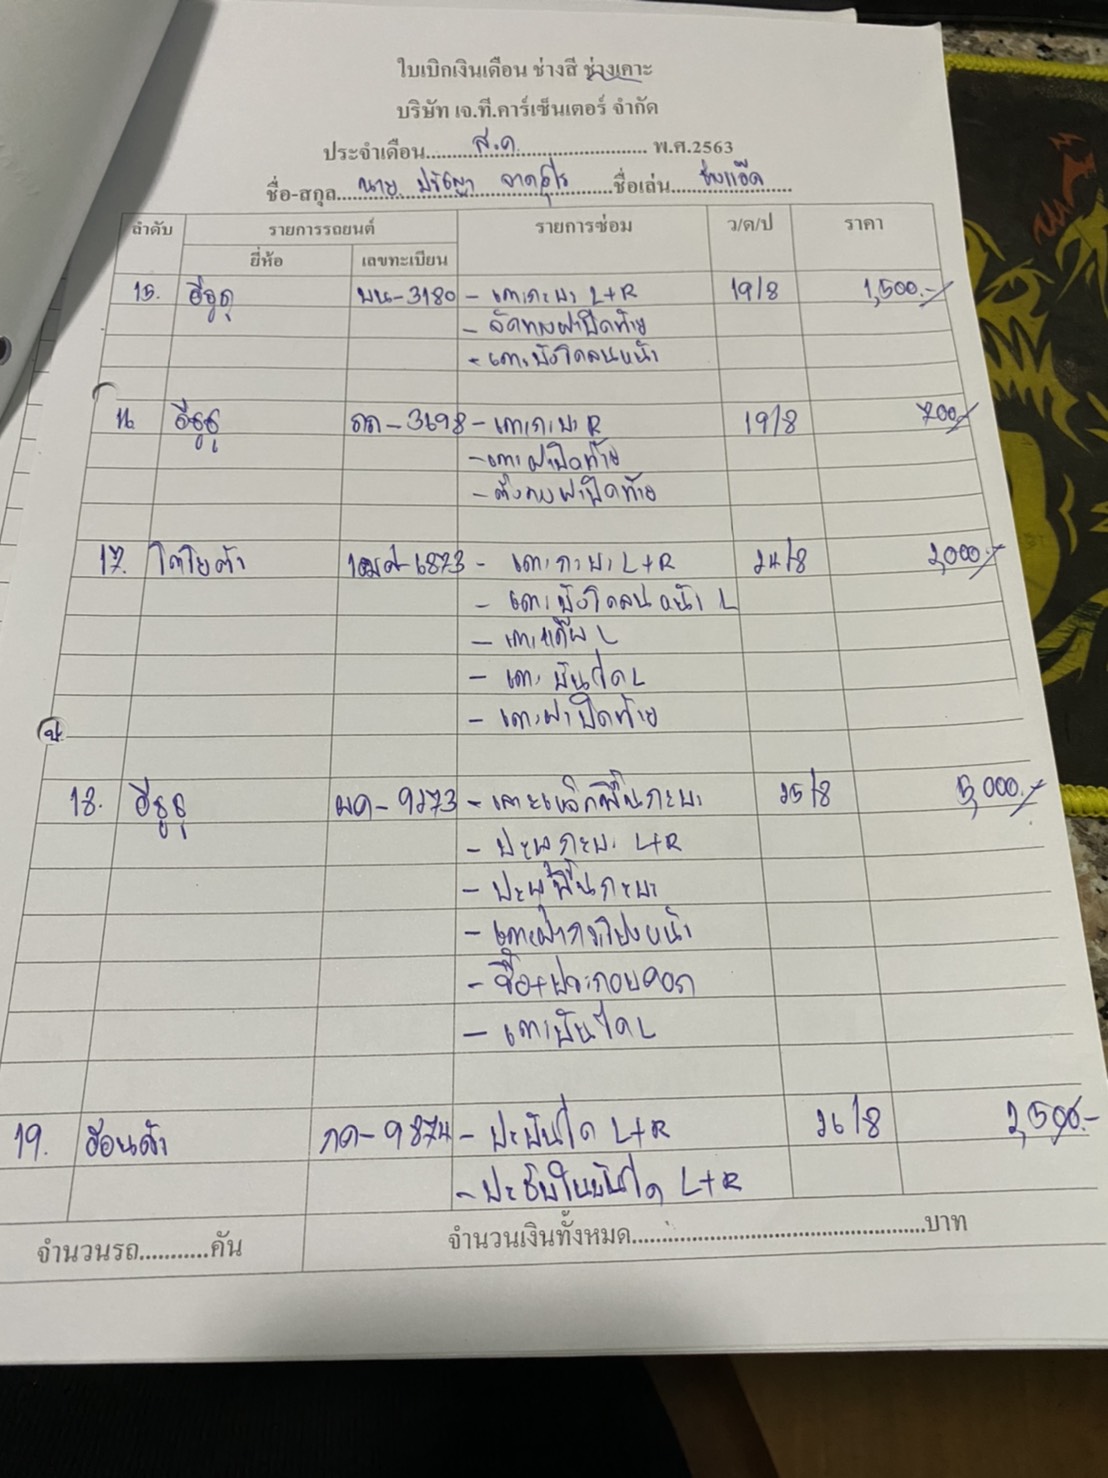 ใบเบิกเงินเดือน ช่างสี ช่างเคาะ
บริษัท เจ.ที.คาร์เซ็นเตอร์ จำกัด
ประจำเดือน.....ส.ค.....พ.ศ.2563
ชื่อ-สกุล.....นาย ปรัชญา.....ชื่อเล่น.....ช่างแอ๊ด.....
ลำดับ รายการรถยนต์ รายการซ่อม ว/ด/ป ราคา
ยี่ห้อ เลขทะเบียน
15. อีซูซุ -3180 - เคาะกะบะ L+R 19/8 1,500.-
- ดัดทรงฝาปิดท้าย
- เคาะบังโคลนหน้า
16 อีซูซุ -3698 - เคาะกะบะ R 19/8 700.-
- เคาะฝาปิดท้าย
- ดึงทรงฝาปิดท้าย
17. โตโยต้า -6873 - เคาะกะบะ L+R 24/8 2,000.-
- เคาะบังโคลนหน้า L
- เคาะแก้ม L
- เคาะบันได L
- เคาะฝาปิดท้าย
18. อีซูซุ ผค-9273 - เคาะเหล็กพื้นกะบะ 25/8 5,000.-
- ปะผุกะบะ L+R
- ปะผุพื้นกะบะ
- เคาะฝากระโปรงหน้า
- รื้อ+ประกอบ
- เคาะบันได L
19. ฮอนด้า กค-9874 - ปะบันได L+R 26/8 2,500.-
- ปะซับในบันได L+R
จำนวนรถ...........คัน จำนวนเงินทั้งหมด...............................................บาท